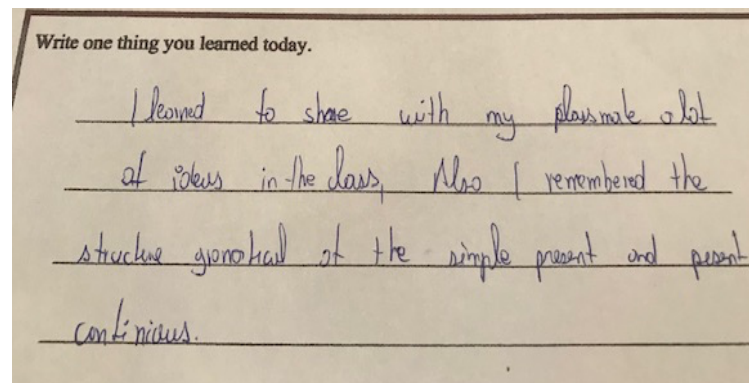 Write one thing you learned today.
I learned to share with my playsmate a lot
of ideas in the class, Also I remembered the
structure gramatical of the simple present and present
continious.